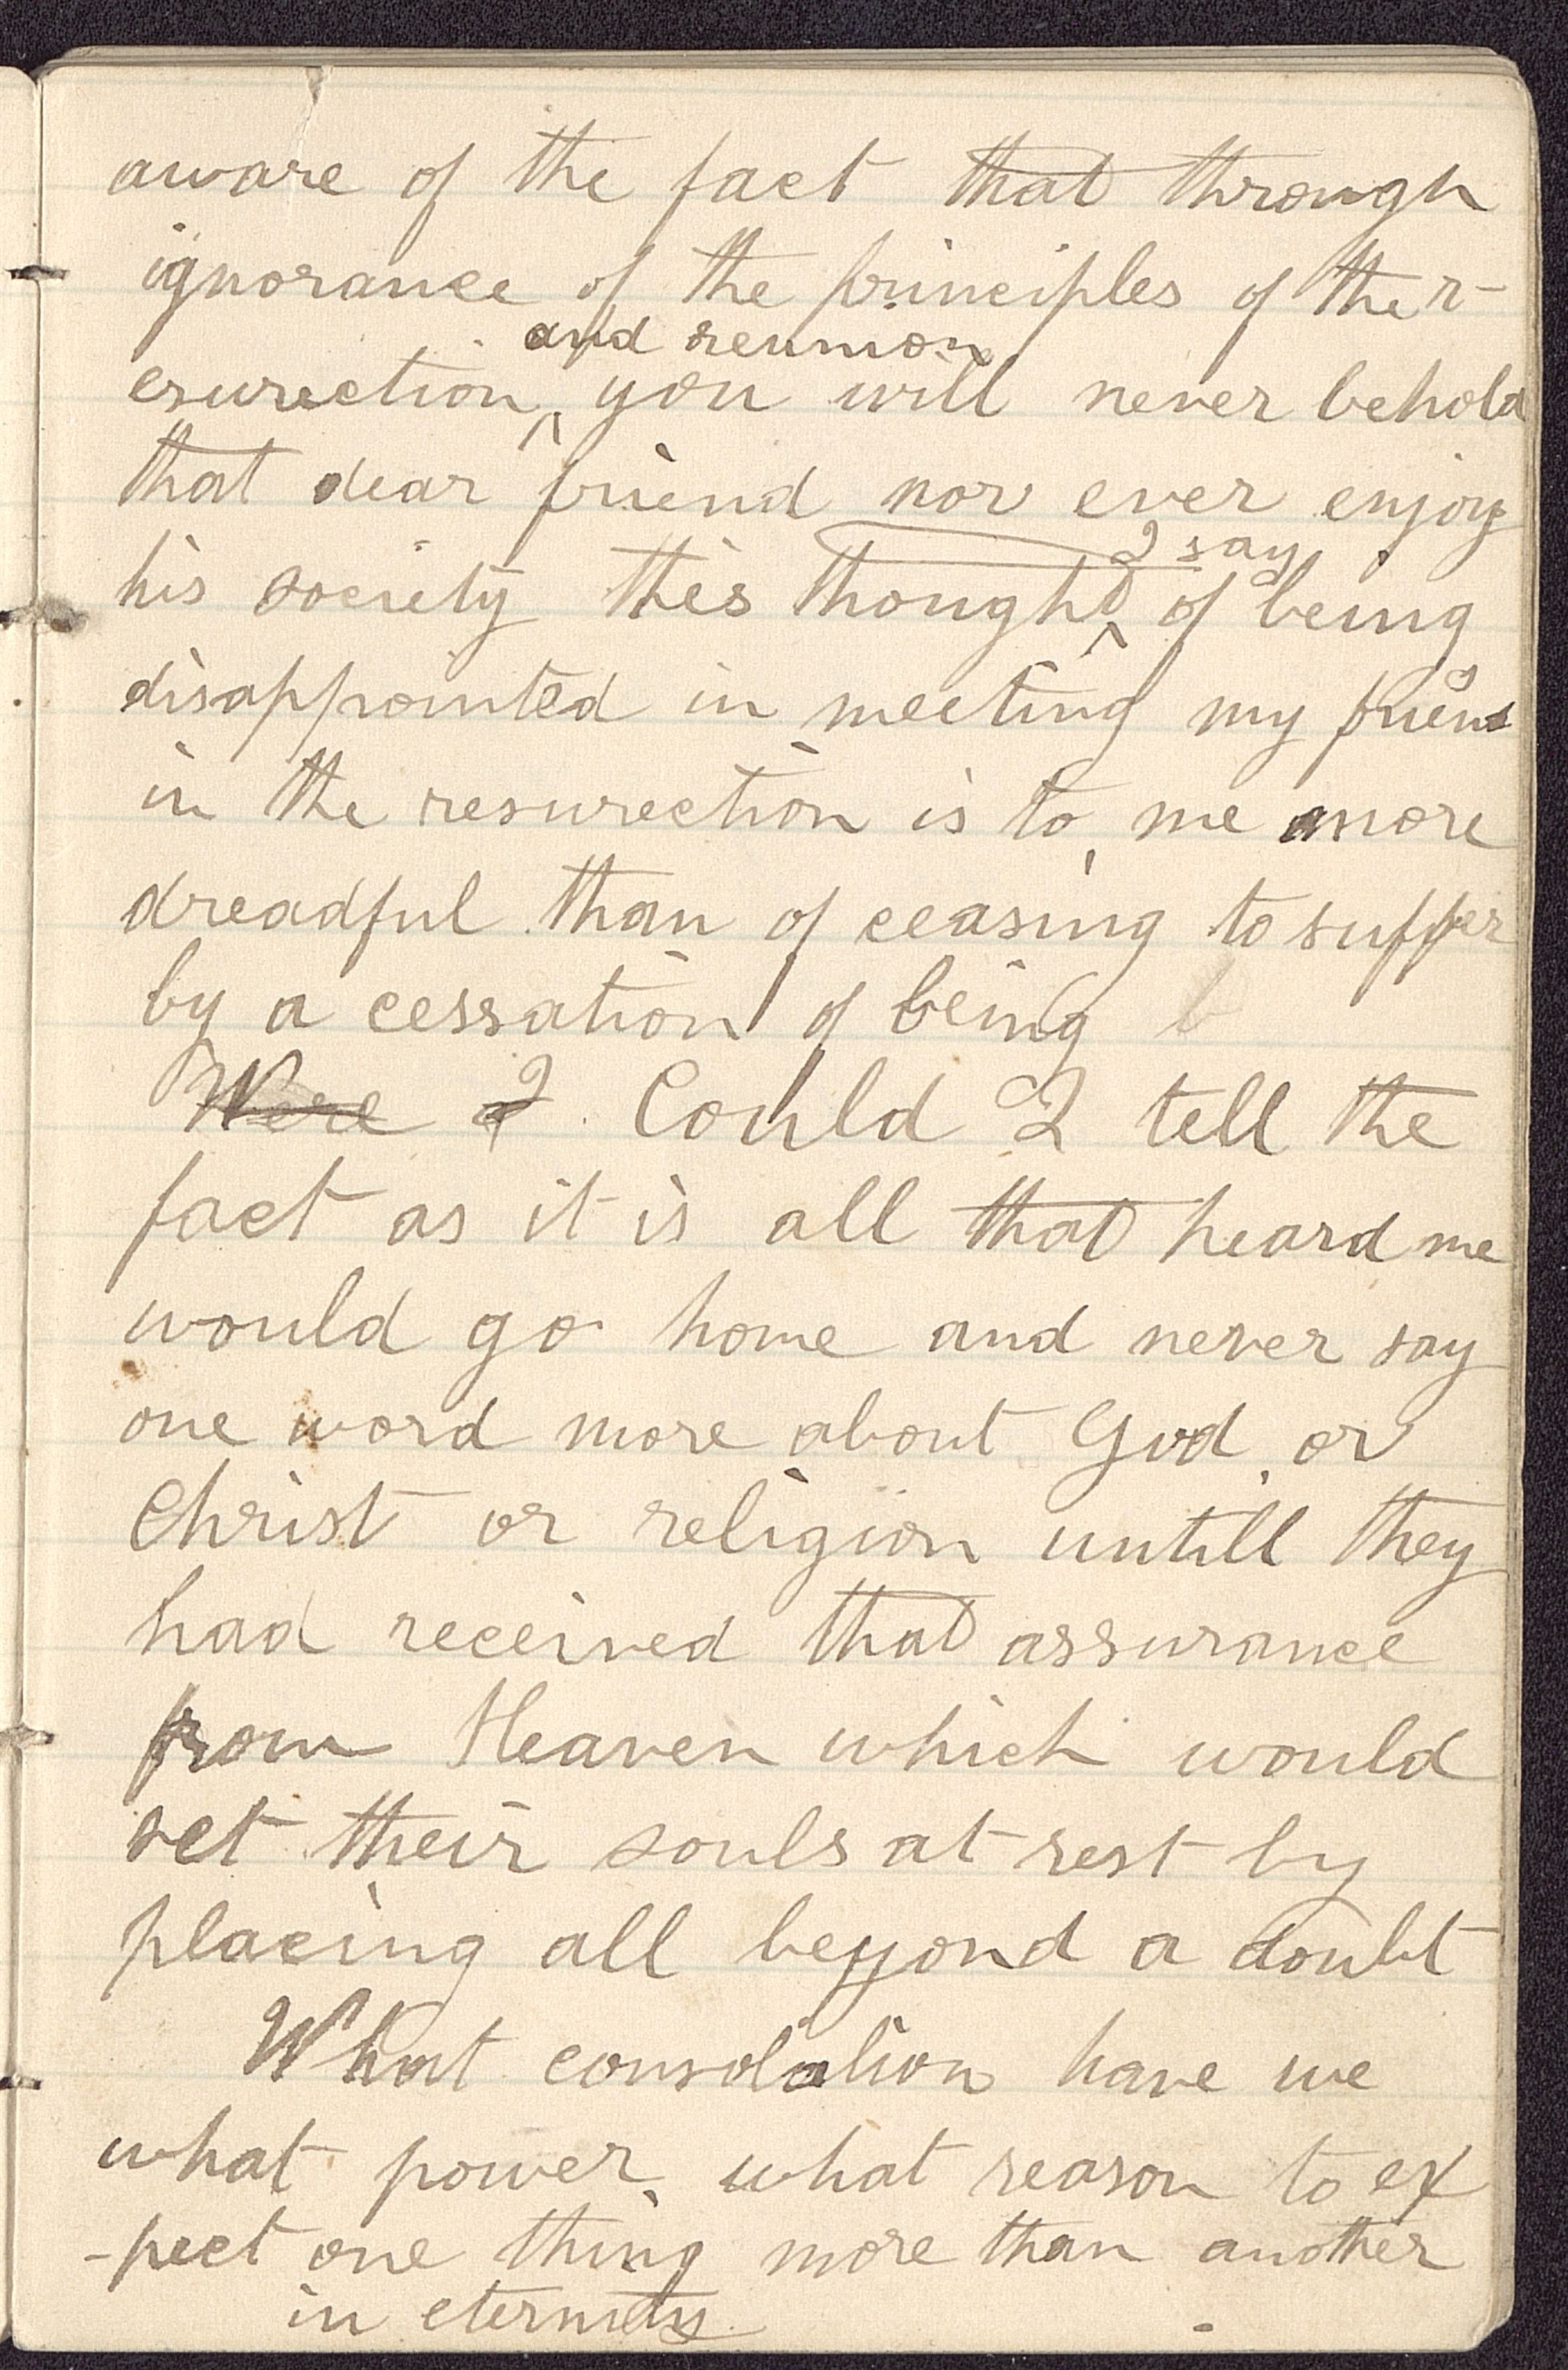 aware of the fact that through
ignorance of the principles of the r-
and reunion
esurection, you will never behold
that dear friend nor ever enjoy
I say
his society this thought, of being
disappointed in meeting my friends
in the resurection is to me more
dreadful than of ceasing to suffer
by a cessation of being
Were I Could I tell the
fact as it is all that heard me
would go home and never say
one word more about God or
Christ or religion untill they
had received that assurance
from Heaven which would
set their souls at rest by
placing all beyond a doubt
What consolation have we
what power, what reason to ex
-pect one thing more than another
in eternity